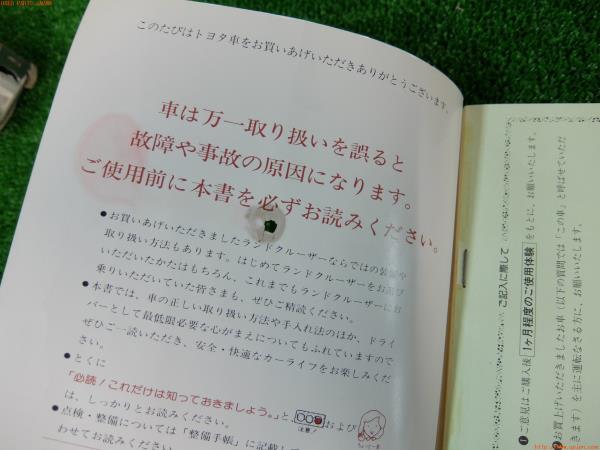 USED PARTS JAPAN
このたびはトヨタ車をお買いあげいただきありがとうございます。
車は万一取り扱いを誤ると
故障や事故の原因になります。
ご使用前に本書を必ずお読みください。
●お買いあげいただきましたランドクルーザーならではの装備や
取り扱い方法もあります。はじめてランドクルーザーをお選び
いただいたかたはもちろん、これまでもランドクルーザーにお
乗りいただいていた皆さまも、ぜひご精読ください。
●本書では、車の正しい取り扱い方法や手入れ法のほか、ドライ
バーとして最低限必要な心がまえについてもふれていますので
ぜひご一読いただき、安全・快適なカーライフをお楽しみくだ
さい。
●とくに
「必読!これだけは知っておきましょう。」と、
注意!
および
は、しっかりとお読みください。
●点検・整備については「整備手帳」に記載して
わせてお読みください
ご記入に際して
❶ご意見はご購入後1ヶ月程度のご使用体験をもとに、お願いいたします。
❷お買上げいただきましたお車(以下の質問では「この車」と呼ばせていただ
きます)を主に運転なさる方に、お願いいたします。